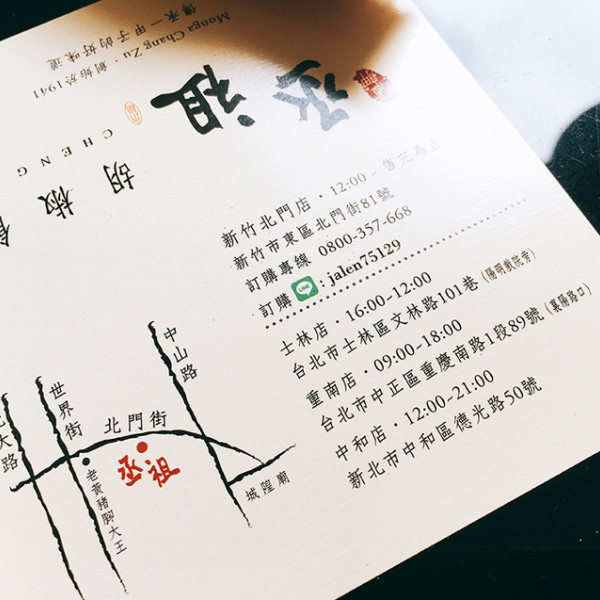 傳承一甲子的好味道
Monga Chang Zu・創始於1941
丞祖
CHENG
胡椒
新竹北門店・12:00-售完為止
新竹市東區北門街81號
訂購專線 0800-357-668
訂購 LINE : jalen75129
士林店・16:00-12:00
台北市士林區文林路101巷 (陽明戲院旁)
重南店・09:00-18:00
台北市中正區重慶南路1段89號 (襄陽路口)
中和店・12:00-21:00
新北市中和區德光路50號
中山路
世界街
北門街
大路
丞祖
老黃豬腳大王
城隍廟